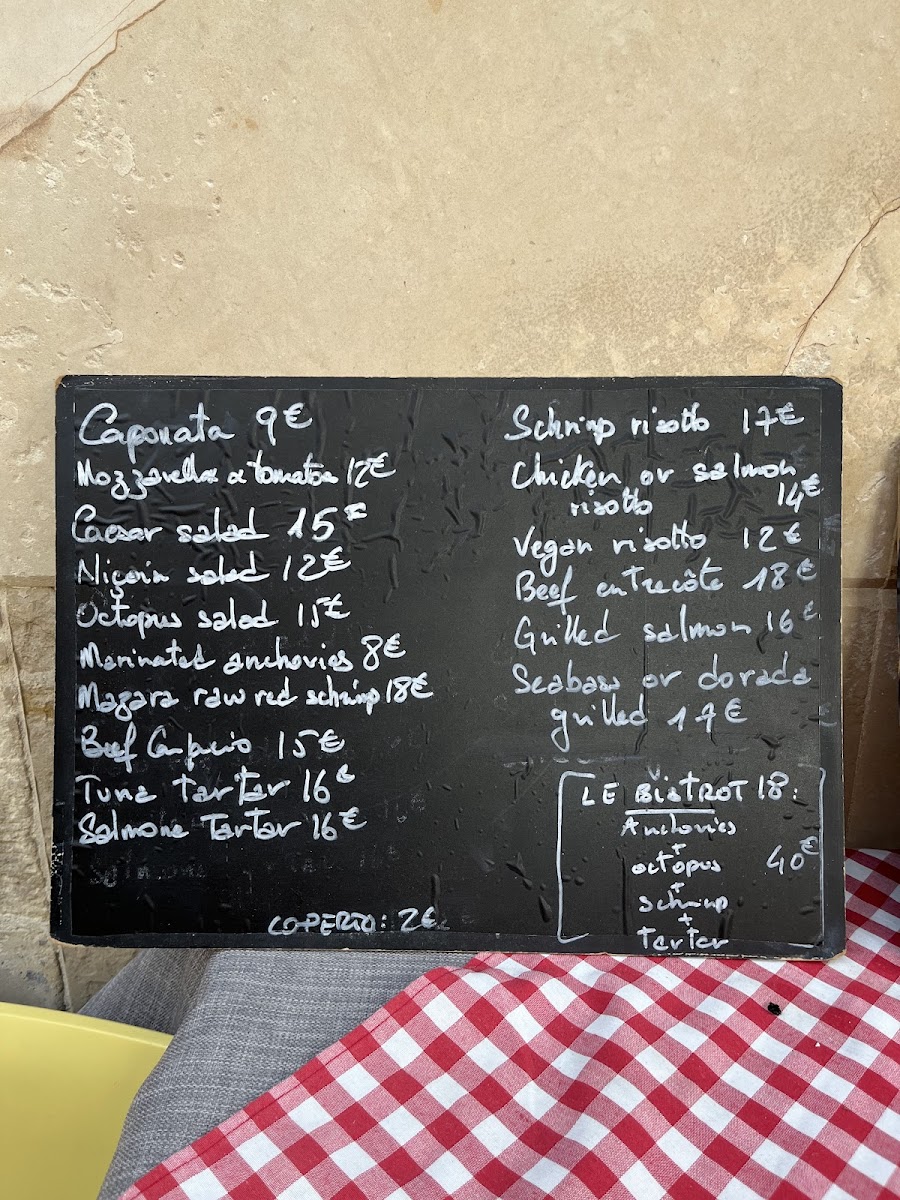 Caponata 9€
Mozzarella e tomatoe 12€
Caesar salad 15€
Niçoin salad 12€
Octopus salad 15€
Marinated anchovies 8€
Mazara raw red schrimp 18€
Beef Carpaccio 15€
Tuna tartar 16€
Salmone tartar 16€
COPERTO: 2€
Schrimp risotto 17€
Chicken or salmon
risotto 14€
Vegan risotto 12€
Beef entrecôte 18€
Grilled salmon 16€
Seabass or dorada
grilled 17€
LE BiSTROT 18:
Anchovies
+
octopus 40€
+
schrimp
+
tartar